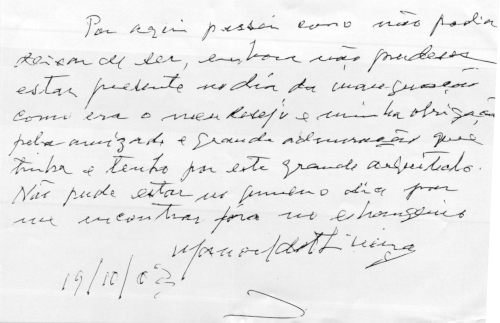 Por aqui passei como não podia
deixar de ser, embora não pudesse
estar presente no dia da inauguração
como era o meu desejo e minha obrigação
pela amizade e grande admiração que
tinha e tenho por este grande arquitecto.
Não pude estar no primeiro dia por
me encontrar fora no estrangeiro
Manoel de Oliveira
19/10/03